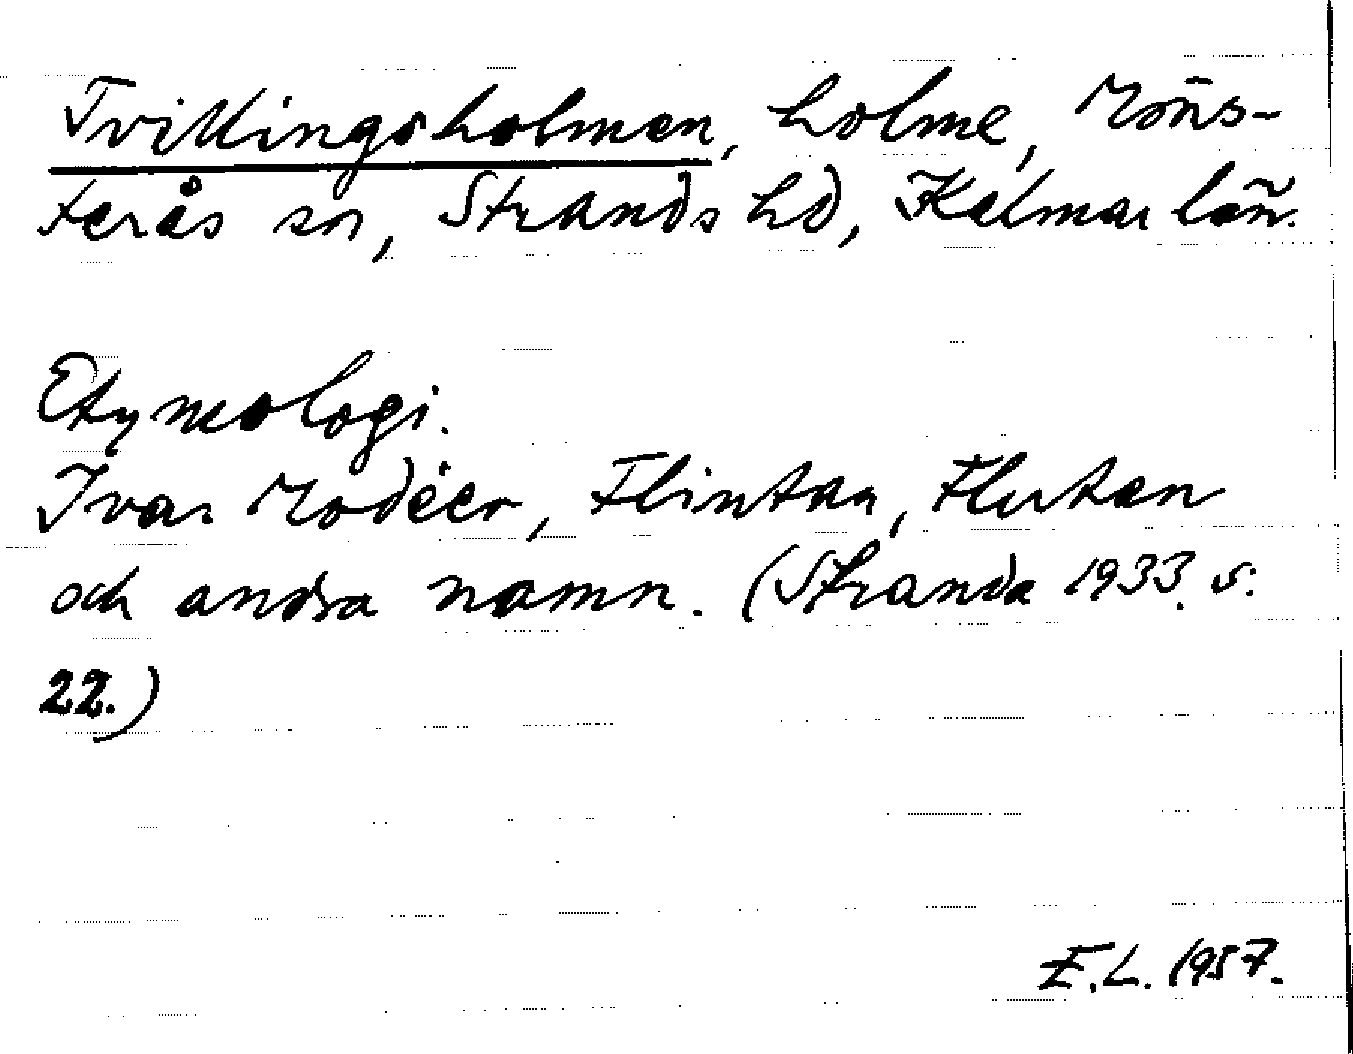 Tvikingsholmen, holme, Möns-
terås sn, Strands hd, Kalmar län.
Etymologi.
Ivar Modéer, Flintan, Flutan
och andra namn. (Stranda 1933. s.
22.)
E.L. 1957.